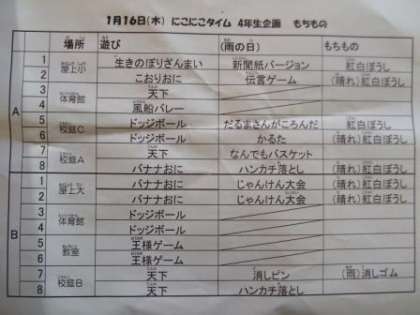 1月16日(水) にこにこタイム 4年生企画 もちもの
場所 遊び (雨の日) もちもの
A
1 屋上小 生きのぼりざんまい 新聞紙バージョン 紅白ぼうし
2 こおりおに 伝言ゲーム (晴れ)紅白ぼうし
3 体育館 天下
4 風船バレー
5 校庭C ドッジボール だるまさんがころんだ 紅白ぼうし
6 ドッジボール かるた (晴れ)紅白ぼうし
7 校庭A 天下 なんでもバスケット
8 バナナおに ハンカチ落とし (晴れ)紅白ぼうし
B
1 屋上大 バナナおに じゃんけん大会 (晴れ)紅白ぼうし
2 バナナおに じゃんけん大会 (晴れ)紅白ぼうし
3 体育館 ドッジボール
4 ドッジボール
5 教室 王様ゲーム
6 王様ゲーム
7 校庭B 天下 消しピン (雨)消しゴム
8 天下 ハンカチ落とし